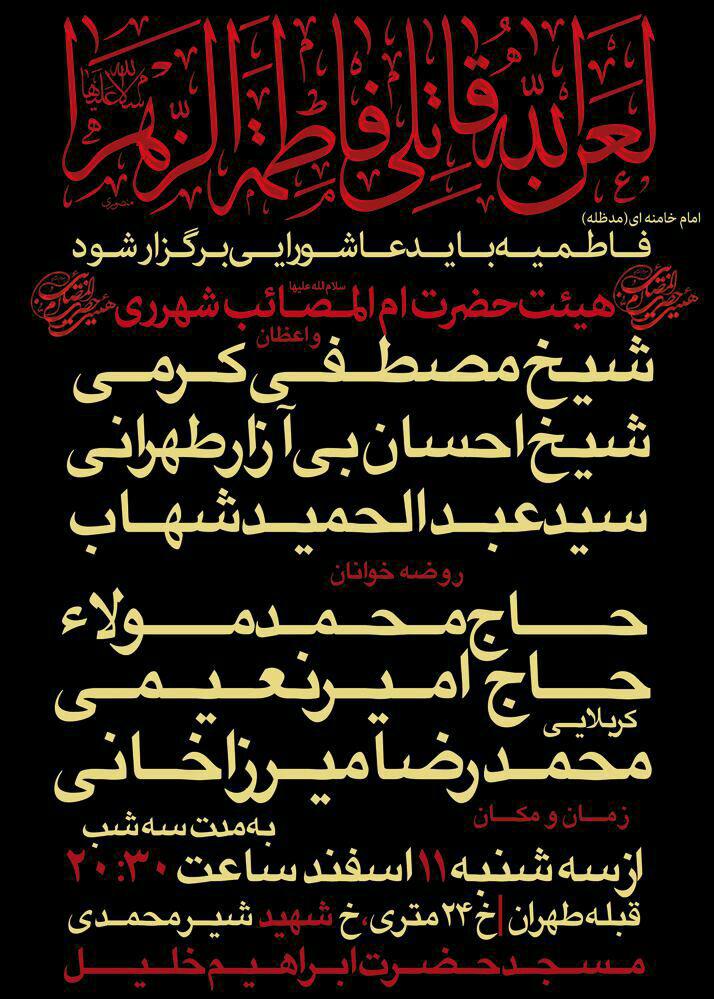 لعن الله قاتلی فاطمة الزهرا
سلام الله علیها
منصوری
امام خامنه ای(مدظله)
فاطمیه باید عاشورایی برگزار شود
هیئت حضرت ام المصائب سلام الله علیها شهرری
واعظان
شیخ مصطفی کرمی
شیخ احسان بی آزار طهرانی
سید عبدالحمید شهاب
روضه خوانان
حاج محمد مولاء
حاج امیر نعیمی
کربلایی
محمدرضا میرزاخانی
زمان و مکان
به مدت سه شب
از سه شنبه ۱۱ اسفند ساعت ۲۰:۳۰
قبله طهران | خ ۲۴ متری، خ شهید شیر محمدی
مسجد حضرت ابراهیم خلیل